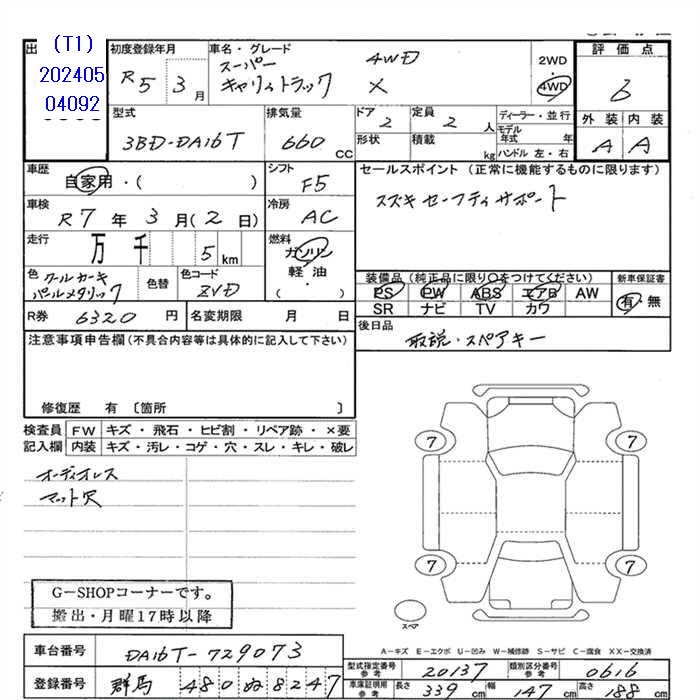 出
(T1)
202405
04092
初度登録年月
R5 3月
車名・グレード
スーパー
キャリィトラック
4WD
X
2WD
4WD
評価点
6
外装 内装
A A
型式
3BD-DA16T
排気量
660 CC
ドア
2
定員
2 人
形状
積載
kg
ディーラー・並行
モデル
年式 年
ハンドル 左・右
車歴
自家用・( )
シフト
F5
セールスポイント (正常に機能するものに限ります)
スズキセーフティサポート
車検
R7年3月(2日)
冷房
AC
走行
万 千 5 km
燃料
ガソリン
軽油
( )
色 クールカーキ
パールメタリック
色替
色コード
ZVD
装備品 (純正品に限り〇をつけてください)
PS PW ABS エアB AW
SR ナビ TV カワ
新車保証書
有・無
R券 6320 円
名変期限 月 日
後日品
取説・スペアキー
注意事項申告欄(不具合内容等は具体的に記入して下さい)
修復歴 有 〔箇所 〕
検査員
記入欄
FW キズ・飛石・ヒビ割・リペア跡・×要
内装 キズ・汚レ・コゲ・穴・スレ・キレ・破レ
オーディオレス
マット穴
7
7
7
7
スペア
G-SHOPコーナーです。
搬出・月曜17時以降
A-キズ E-エクボ U-凹み W-補修跡 S-サビ C-腐食 XX-交換済
車台番号 DA16T-729073
型式指定番号
参考
20137
類別区分番号
参考
0616
登録番号 群馬 480 ぬ 8247
車庫証明用
参考
長さ 339 cm 幅 147 cm 高さ 188 cm